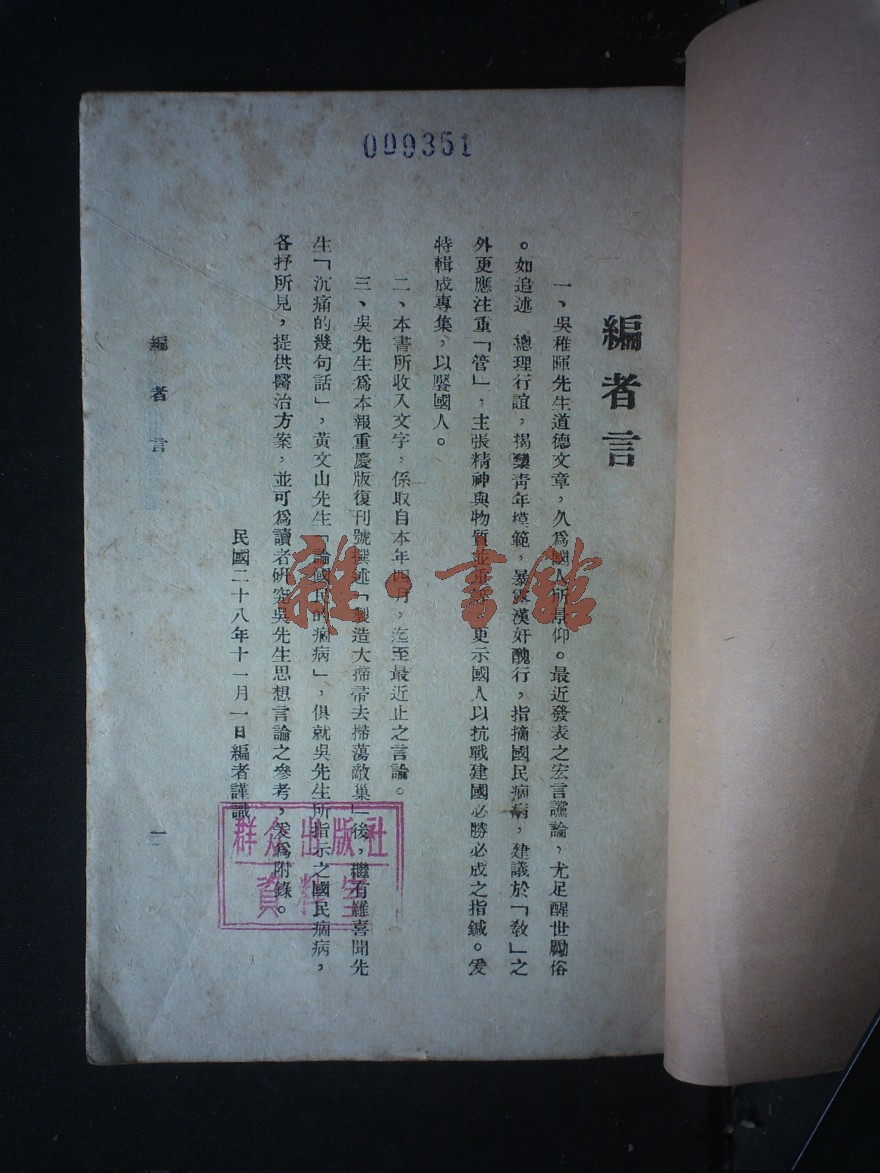 009351
編者言
一、吳稚暉先生道德文章，久為國人所景仰。最近發表之宏言讜論，尤足醒世勵俗
。如追述　總理行誼，揭櫫青年模範，暴露漢奸醜行，指摘國民痼病，建議於「敎」之
外更應注重「管」，主張精神與物質並重，更示國人以抗戰建國必勝必成之指鍼。爰
特輯成專集，以饗國人。
二、本書所收入文字，係取自本年四月，迄至最近止之言論。
三、吳先生為本報重慶版復刊號撰述「製造大掃帚去掃蕩敵巢」後，繼有羅喜聞先
生「沉痛的幾句話」，黃文山先生「論國民的痼病」，俱就吳先生所指示之國民痼病，
各抒所見，提供醫治方案，並可為讀者研究吳先生思想言論之參考，爰為附錄。
民國二十八年十一月一日編者謹識
編者言
一
群众出版社
資料室
雜·書館